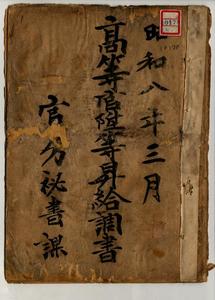 昭和八年三月
高等官陞等昇給調書
官房秘書課